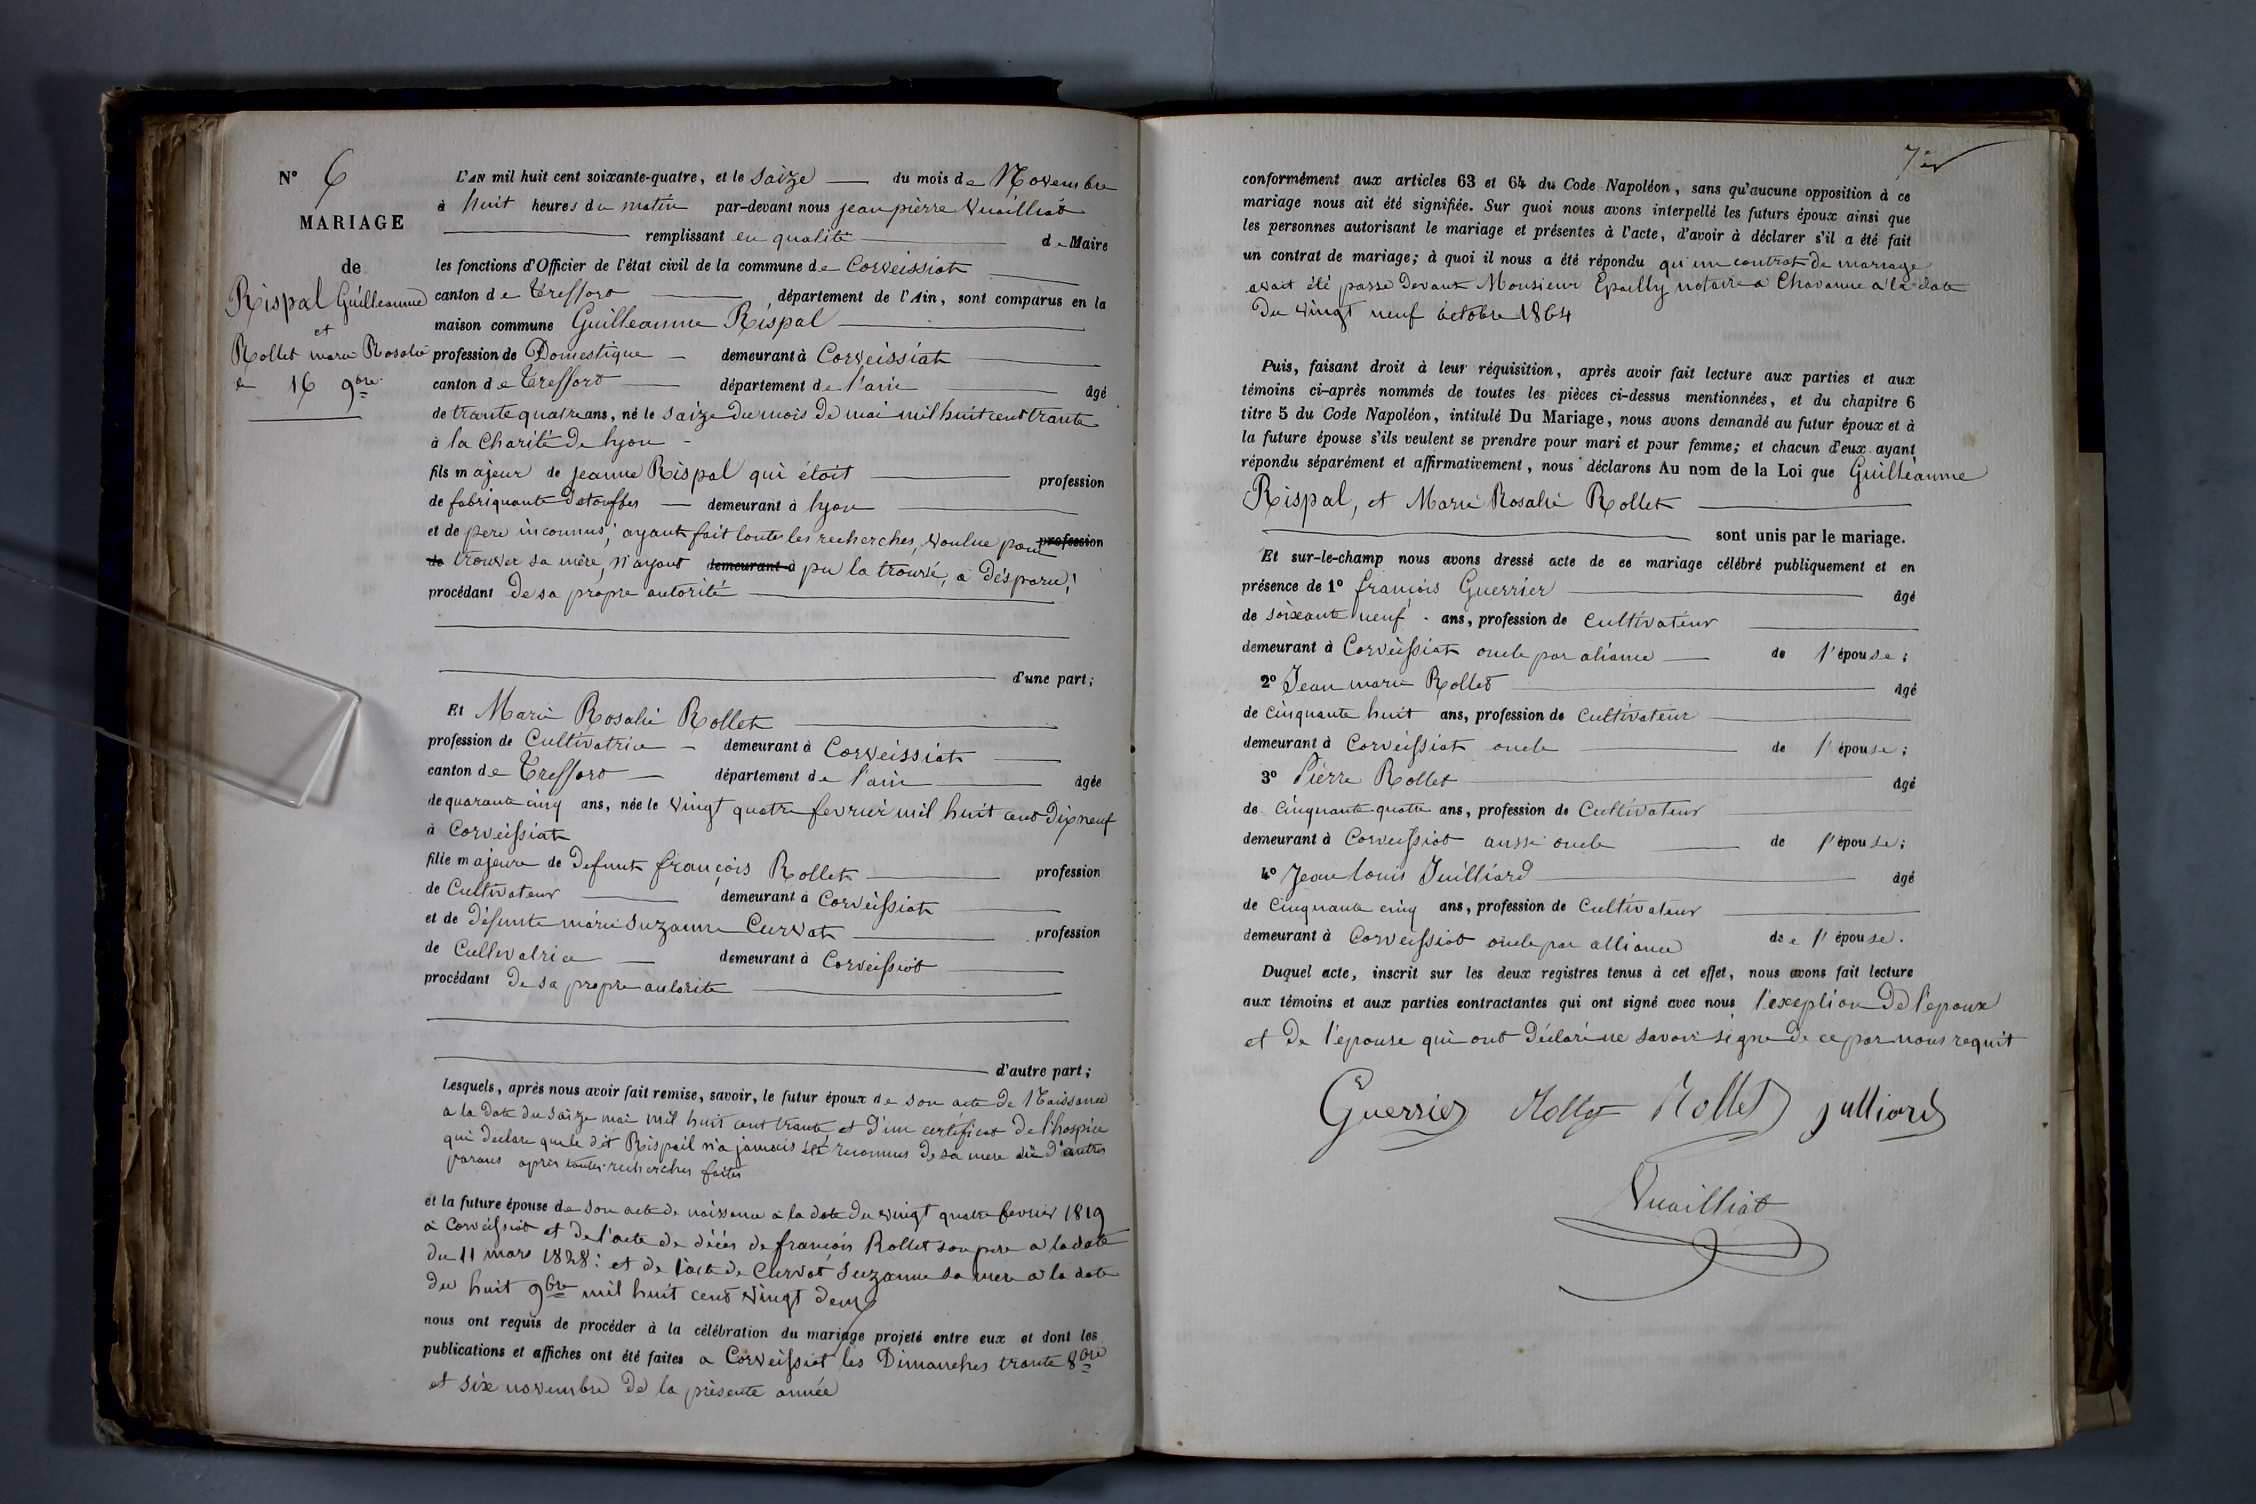 N° 6
MARIAGE
de
Rispal Guilleaume
et
Rollet marie Rosalie
le 16 9bre
L'AN mil huit cent soixante-quatre, et le saize du mois de Novembre
à huit heures du matin par-devant nous jean pièrre Vuailliat
remplissant en qualité de Maire
les fonctions d'Officier de l'état civil de la commune de Corveissiat
canton de Treffort département de l'Ain, sont comparus en la
maison commune Guilleaume Rispal
profession de Domestique demeurant à Corveissiat
canton de Treffort département de l'ain âgé
de trante quatre ans, né le saize du mois de mai mil huit cent trante
à la Charité de lyon
fils majeur de jeanne Rispal qui étoit profession
de fabriquante d'etouffes demeurant à lyon
et de pere inconnus, ayant fait toutes les recherches, voulue pour profession
de trouver sa mère, n'ayant demeurant à pu la trouvé, a désparu!
procédant de sa propre autorité
d'une part;
Et Marie Rosalie Rollet
profession de Cultivatrice demeurant à Corveissiat
canton de Treffort département de l'ain âgée
de quarante cinq ans, née le vingt quatre fevrier mil huit cent dix neuf
à Corveissiat
fille majeure de defunt françois Rollet profession
de Cultivateur demeurant à Corveissiat
et de défunte marie Suzanne Curvat profession
de Cultivatrice demeurant à Corveissiat
procédant de sa propre autorite
d'autre part;
Lesquels, après nous avoir fait remise, savoir, le futur époux de son acte de Naissance
a la date du saize mai mil huit cent trante et d'un certificat de l'hospice
qui declare que le dit Rispail n'a jamais été reconnus de sa mere d'autres
parans apres toutes recherches faites
et la future épouse de son acte de naissance a la date du vingt quatre fevrier 1819
a Corveissiat et de l'acte de décés de françois Rollet son pere a la date
du 11 mars 1828: et de l'acte de Curvat Suzanne sa mere a la date
du huit 9bre mil huit cent vingt deux
nous ont requis de procéder à la célébration du mariage projeté entre eux et dont les
publications et affiches ont été faites a Corveissiat les Dimanches trante 8bre
et six novembre de la présente année
conformément aux articles 63 et 64 du Code Napoléon, sans qu'aucune opposition à ce
mariage nous ait été signifiée. Sur quoi nous avons interpellé les futurs époux ainsi que
les personnes autorisant le mariage et présentes à l'acte, d'avoir à déclarer s'il a été fait
un contrat de mariage; à quoi il nous a été répondu qu'un contrat de mariage
avait été passé devant Monsieur Epailly notaire a Chavanne a la date
du vingt neuf octobre 1864
Puis, faisant droit à leur réquisition, après avoir fait lecture aux parties et aux
témoins ci-après nommés de toutes les pièces ci-dessus mentionnées, et du chapitre 6
titre 5 du Code Napoléon, intitulé Du Mariage, nous avons demandé au futur époux et à
la future épouse s'ils veulent se prendre pour mari et pour femme; et chacun d'eux ayant
répondu séparément et affirmativement, nous déclarons Au nom de la Loi que Guilleaume
Rispal, et Marie Rosalie Rollet
sont unis par le mariage.
Et sur-le-champ nous avons dressé acte de ce mariage célébré publiquement et en
présence de 1° françois Guerrier âgé
de soixante neuf ans, profession de cultivateur
demeurant à Corveissiat oncle par aliance de l'épouse;
2° Jean marie Rollet âgé
de cinquante huit ans, profession de cultivateur
demeurant à Corveissiat oncle de l'épouse;
3° Pièrre Rollet âgé
de cinquante quatre ans, profession de Cultivateur
demeurant à Corveissiat aussi oncle de l'épouse;
4° Jean louis Juilliard âgé
de Cinquante cinq ans, profession de Cultivateur
demeurant à Corveissiat oncle par alliance de l'épouse.
Duquel acte, inscrit sur les deux registres tenus à cet effet, nous avons fait lecture
aux témoins et aux parties contractantes qui ont signé avec nous l'exeption de l'époux
et de l'épouse qui ont déclaré ne savoir signe de ce par nous requit
Guerrier Rollet Rollet julliard
Vuailliat